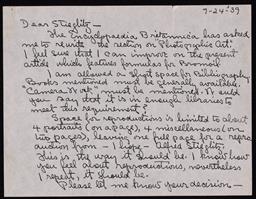 7-24-39
Dear Stieglitz -
The Encyclopaedia Britannica has asked
me to rewrite the "section on Photographic Art".
I feel sure that I can improve on the present
article which features formulas for Bromoil
I am allowed a short space for Bibliography.
Books mentioned must be generally available.
"Camera Work" must be mentioned. Would
you say that it is in enough libraries to
meet this requirement.
Space for reproductions is limited to about
4 portraits (on a page), 4 miscellaneous (on
two pages), leaving one full page for a repro-
duction from - I hope - Alfred Stieglitz.
This is the way it should be. I know how
you feel about reproductions, nevertheless
I repeat, it should be.
Please let me know your decision -